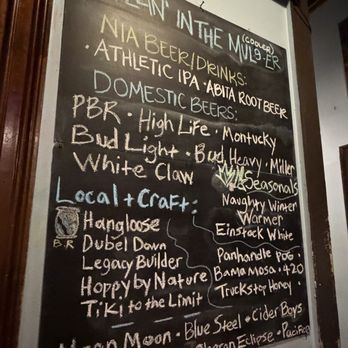 IN THE MULB-ER
(COOLER)
N/A BEER/DRINKS:
• ATHLETIC IPA • ABITA ROOT BEER
DOMESTIC BEERS:
PBR • High Life • Montucky
Bud Light • Bud Heavy • Miller
White Claw
Seasonals
Naughty Winter
Warmer
Einstock White
Local + Craft:
Hangloose
BR
Dubel Down
Legacy Builder
Hoppy by Nature
Tiki to the Limit
Panhandle POG •
Bama Mosa • 420
Truckstop Honey •
Moon • Blue Steel • Cider Boys
Eclipse • Pacifico